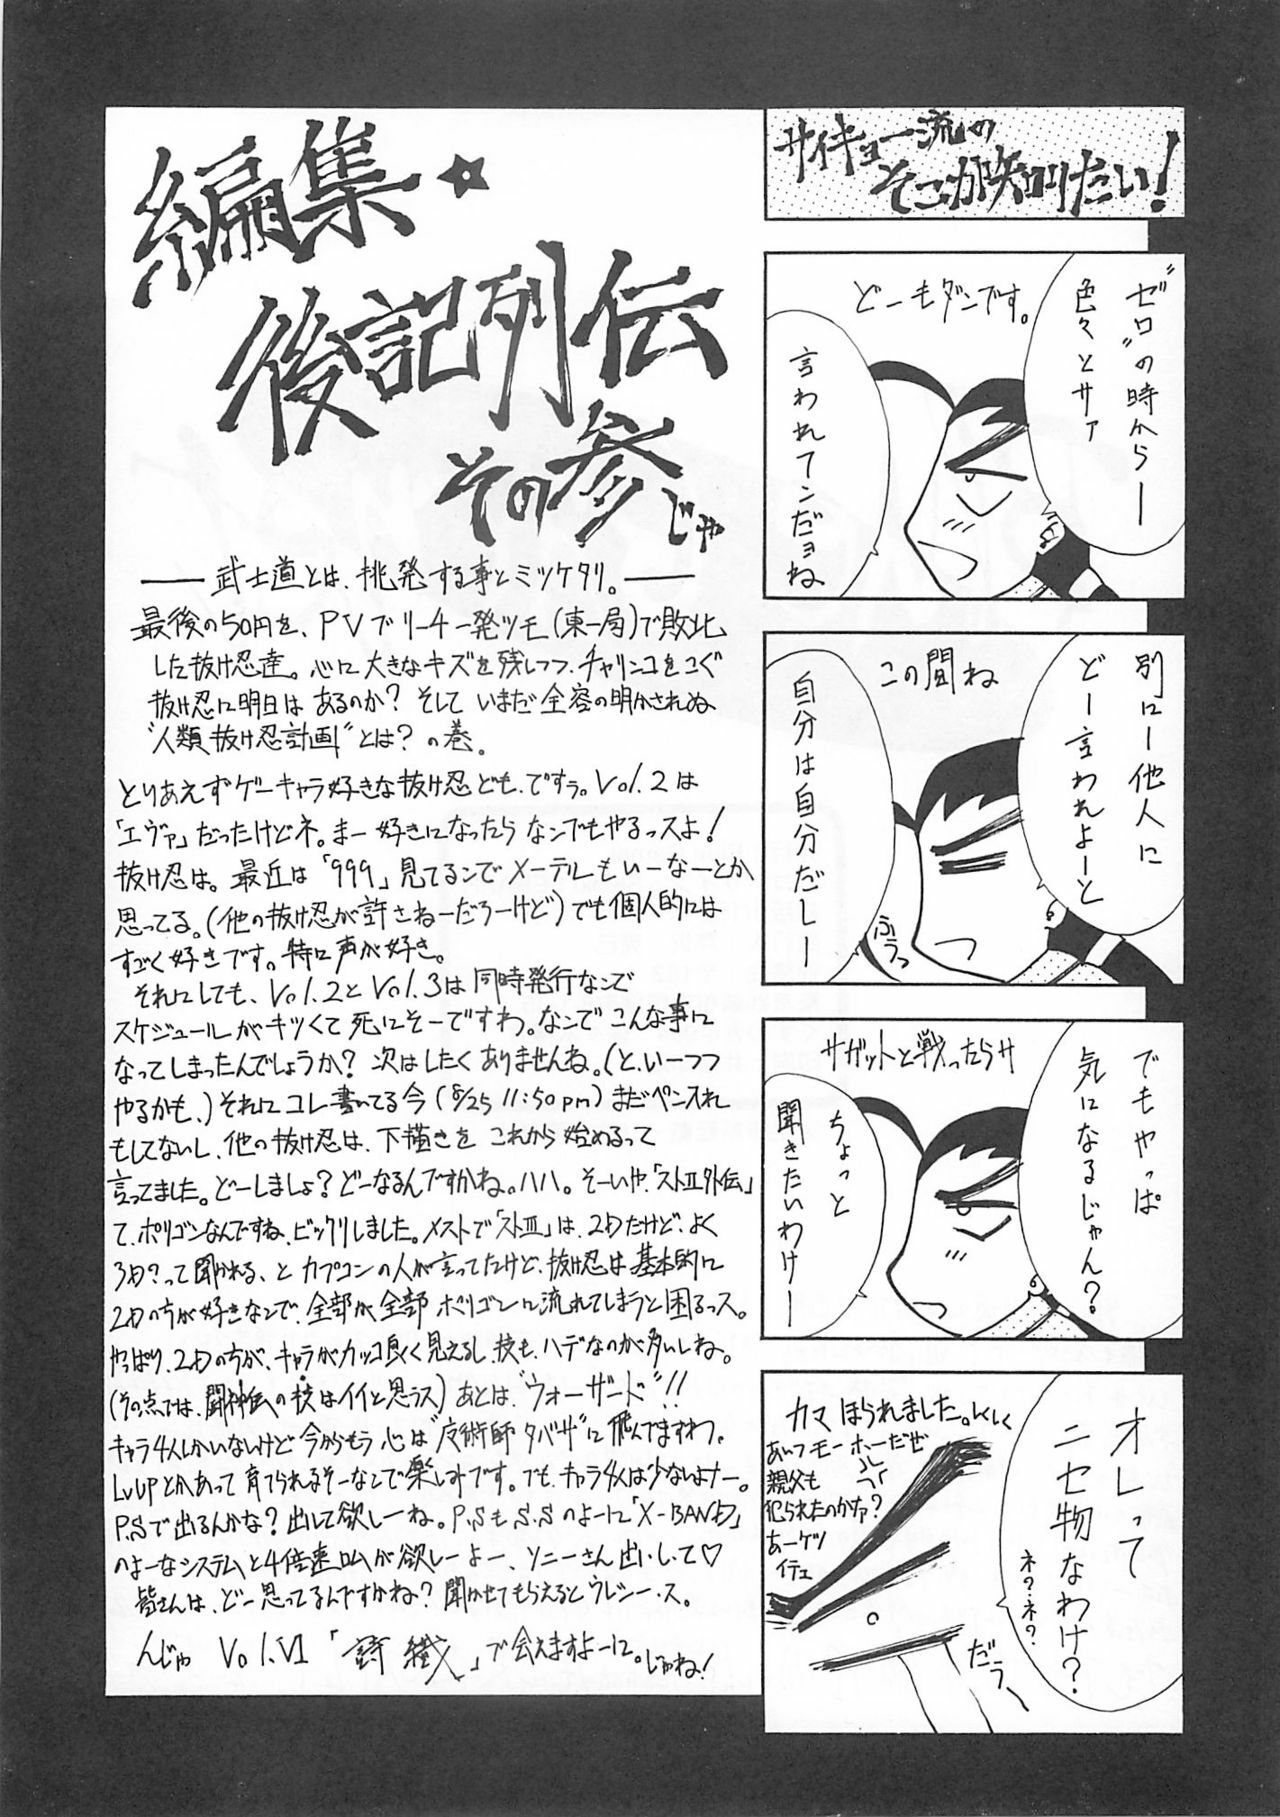 編集☆
後記列伝
その参じゃ
── 武士道とは、挑発する事とミツケタリ。──
最後の50円を、PVでリーチ一発ツモ(東一局)で敗北
した抜け忍達。心に大きなキズを残しつつ、チャリンコをこぐ
抜け忍に明日はあるのか? そして いまだ全容の明かされぬ
"人類抜け忍計画"とは? の巻。
とりあえずゲーキャラ好きな抜け忍ども、ですぅ。Vol.2は
「エヴァ」だったけどネ。まー好きになったらなんでもやるっスよ!
抜け忍は。最近は「999」見てるんでメーテルもいーなーとか
思ってる。(他の抜け忍が許さねーだろーけど)でも個人的には
すごく好きです。特に声が好き。
それにしても、Vol.2とVol.3は同時発行なんで
スケジュールがキツくて死にそーですわ。なんでこんな事に
なってしまったんでしょうか? 次はしたくありませんね。(と、いーつつ
やるかも。)それにコレ書いてる今(8/25 11:50pm)まだペン入れ
もしてないし、他の抜け忍は、下描きをこれから始めるって
言ってました。どーしましょ? どーなるんですかね。ハハ。そーいや、「ストII外伝」
て、ポリゴンなんですね、ビックリしました。メストで「ストIII」は、2Dだけど、よく
3D?って聞かれる、とカプコンの人が言ってたけど、抜け忍は基本的に
2Dの方が好きなんで、全部が全部ポリゴンに流れてしまうと困るっス。
やっぱり、2Dの方が、キャラがカッコ良く見えるし、技も、ハデなのが多いしね。
(その点では、闘神伝の技はイイと思うっス)あとは、"ウォーザード"!!
キャラ4人しかいないけど今からもう心は"魔術師タバサ"に飛んでますわ。
LvUPとかあって育てられるそーなんで楽しみです。でも、キャラ4人は少ないよナー。
P.Sで出るんかな? 出して欲しーね。P.SもS.Sのよーに「X-BAND」
のよーなシステムと4倍速ロムが欲しーよー、ソニーさん出いして♡
皆さんは、どー思ってるんですかね? 聞かせてもらえるとウレシー・ス。
んじゃ Vol.VI「詩織」で会えますよーに。じゃね!
サイキョー流の
そこが知りたい!
"ゼロ"の時からー
色々とサァ
どーもダンです。
言われてンだョね
別にー他人に
どー言われよーと
この間ね
自分は自分だしー
ふぅっ
でもやっぱ
気になるじゃん?
サガットと戦ったらサ
ちょっと
聞きたいわけー
オレって
ニセ物なわけ?
ネ?ネ?ネ?
カマ ほられました。しくしく
あいつモーホーだぜ
親父も
犯られたのかァ?
あーケツ
イテェ
だぅー